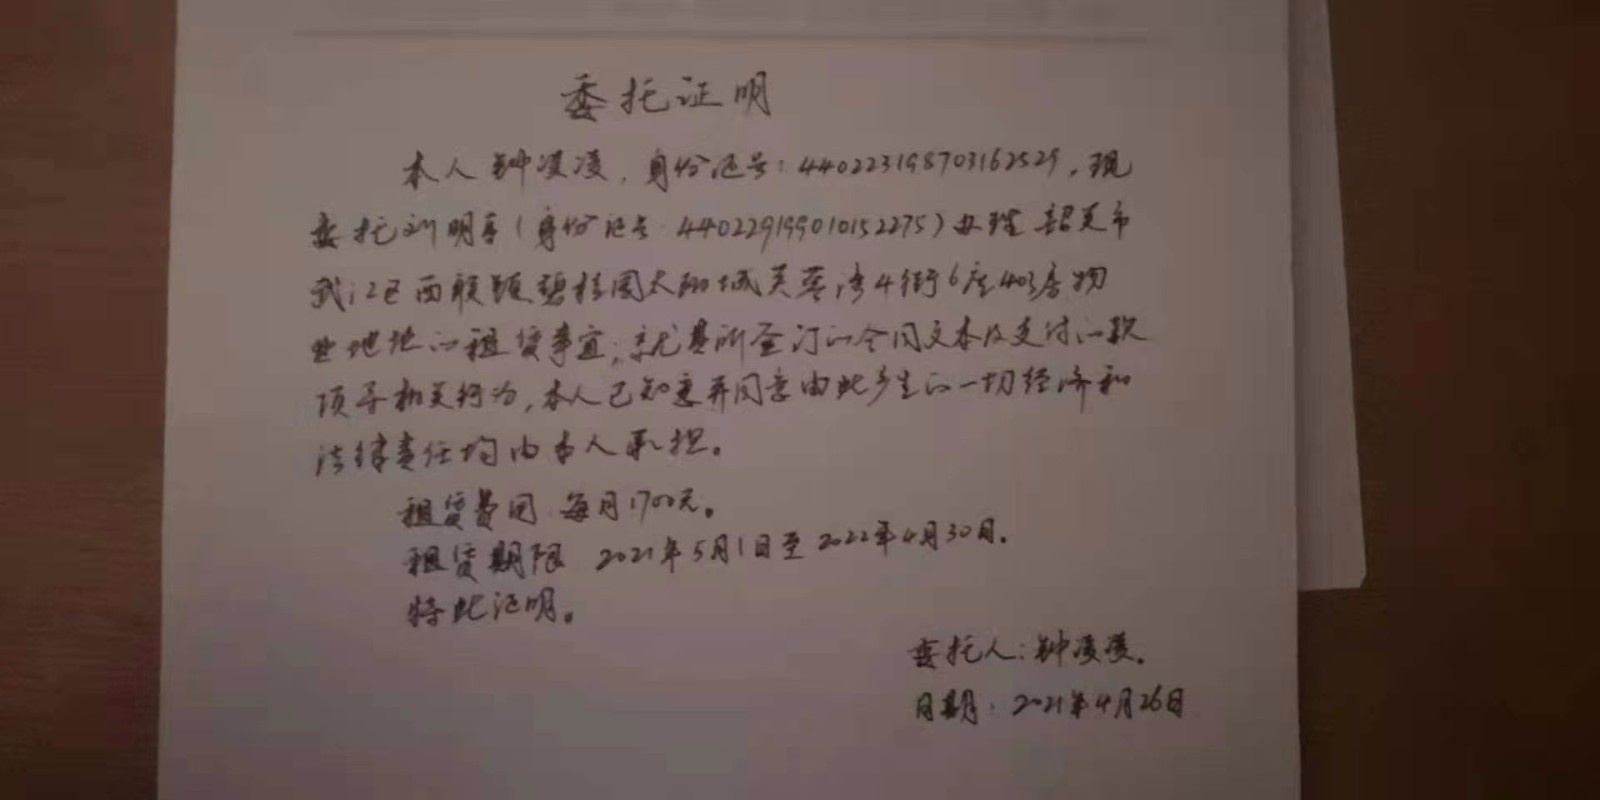 委托证明
本人钟凌凌，身份证号：440223198703162529，现
委托刘明享（身份证号：440229199010152275）办理韶关市
武江区西联镇碧桂园太阳城芙蓉湾4街6座403房物
业地址的租赁事宜，就其所签订的合同文本及支付的款
项等相关行为，本人已知悉并同意由此产生的一切经济和
法律责任均由本人承担。
租赁费用：每月1700元。
租赁期限 2021年5月1日至2022年4月30日.
特此证明。
委托人：钟凌凌.
日期：2021年4月26日